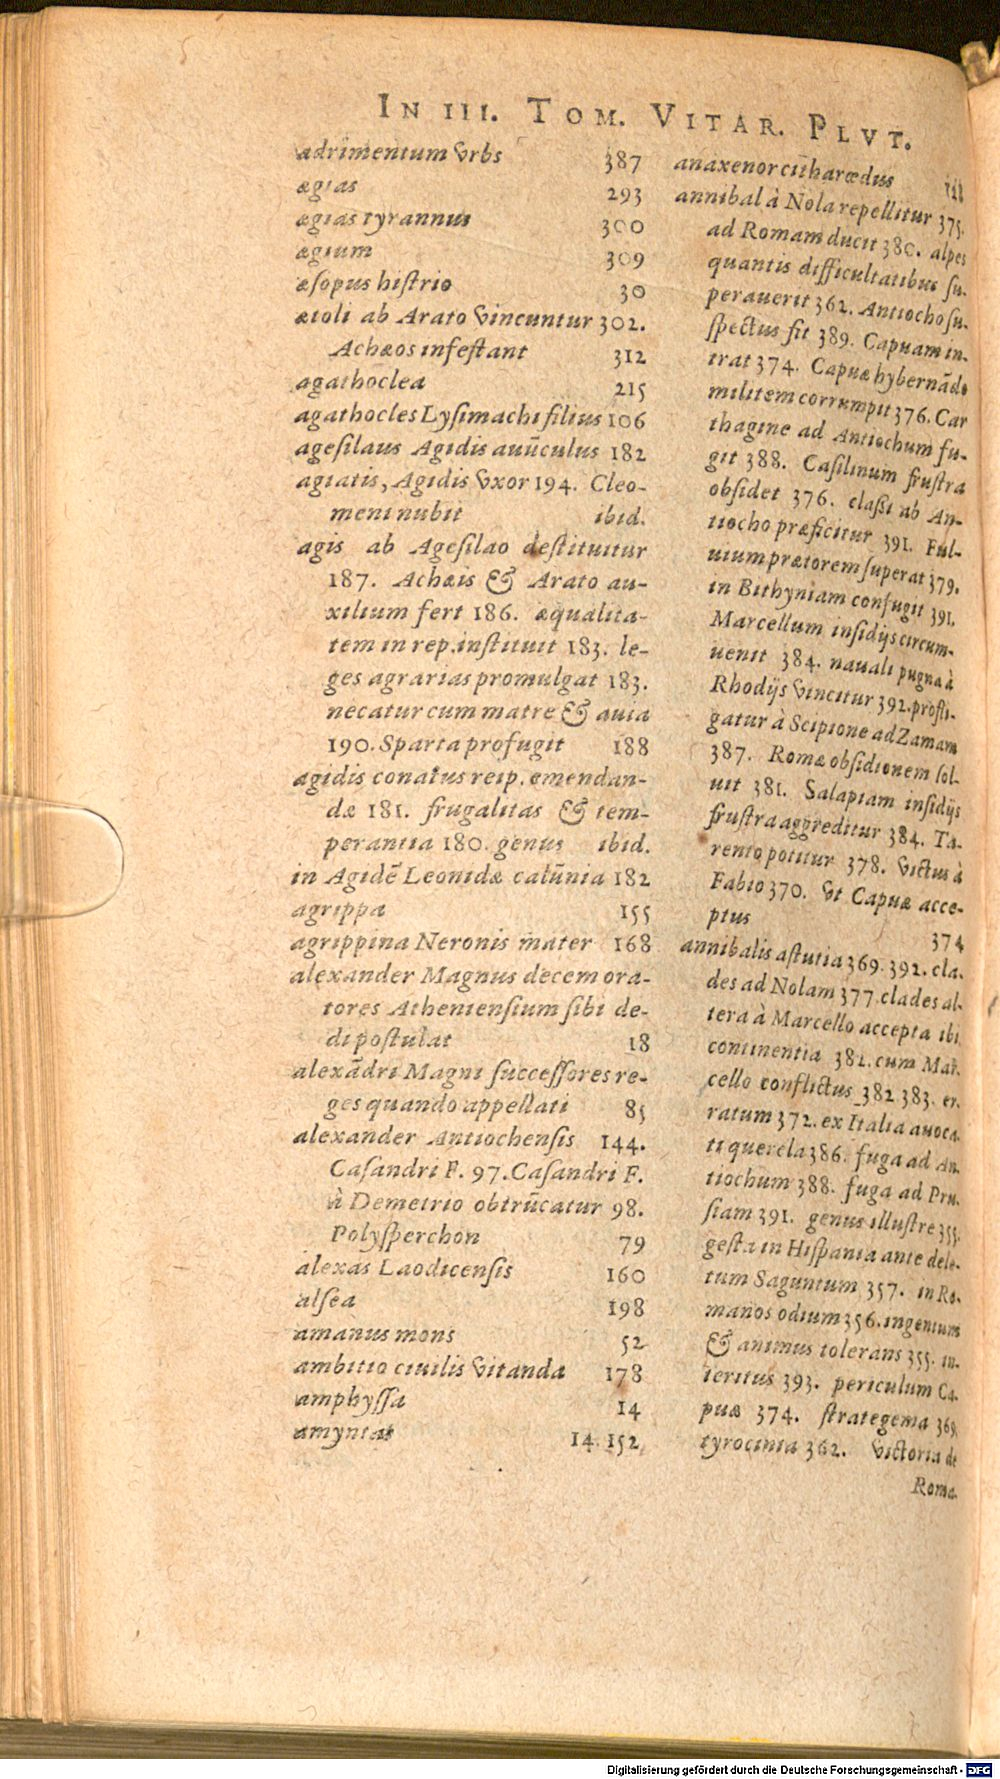 IN III. TOM. VITAR. PLVT.
adrimentum vrbs 387
ægias 293
ægias tyrannus 300
ægium 309
æsopus histrio 30
ætoli ab Arato vincuntur 302.
Achæos infestant 312
agathoclea 215
agathocles Lysimachi filius 106
agesilaus Agidis auūculus 182
agiatis, Agidis vxor 194. Cleo-
meni nubit ibid.
agis ab Agesilao destituitur
187. Achæis & Arato au-
xilium fert 186. æqualita-
tem in rep. instituit 183. le-
ges agrarias promulgat 183.
necatur cum matre & auia
190. Sparta profugit 188
agidis conatus reip. emendan-
dæ 181. frugalitas & tem-
perantia 180. genus ibid.
in Agidē Leonidæ calūnia 182
agrippa 155
agrippina Neronis mater 168
alexander Magnus decem ora-
tores Atheniensium sibi de-
di postulat 18
alexādri Magni successores re-
ges quando appellati 85
alexander Antiochensis 144.
Casandri F. 97. Casandri F.
à Demetrio obtrūcatur 98.
Polysperchon 79
alexas Laodicensis 160
alsea 198
amanus mons 52
ambitio ciuilis vitanda 178
amphyssa 14
amyntas 14. 152
anaxenor citharœdus
annibal à Nola repellitur 375.
ad Romam ducit 380. alpes
quantis difficultatibus su-
perauerit 362. Antiocho su-
spectus fit 389. Capuam in-
trat 374. Capuæ hybernādo
militem corrumpit 376. Car
thagine ad Antiochum fu-
git 388. Casilinum frustra
obsidet 376. classi ab An-
tiocho præficitur 391. Ful-
uium prætorem superat 379.
in Bithyniam confugit 391.
Marcellum insidijs circum-
uenit 384. nauali pugna à
Rhodijs vincitur 392. profli-
gatur à Scipione ad Zamam
387. Romæ obsidionem sol-
uit 381. Salapiam insidijs
frustra aggreditur 384. Ta-
rento potitur 378. victus à
Fabio 370. vt Capuæ acce-
ptus 374
annibalis astutia 369. 392. cla-
des ad Nolam 377. clades al-
tera à Marcello accepta ibi.
continentia 382. cum Mar-
cello conflictus 382. 383. er-
ratum 372. ex Italia auoca-
ti querela 386. fuga ad An-
tiochum 388. fuga ad Pru-
siam 391. genus illustre 355.
gesta in Hispania ante dele-
tum Saguntum 357. in Ro-
manos odium 356. ingenium
& animus tolerans 355. in-
teritus 393. periculum Ca-
puæ 374. strategema 369.
tyrocinia 362. victoria de
Roma-
Digitalisierung gefördert durch die Deutsche Forschungsgemeinschaft - DFG